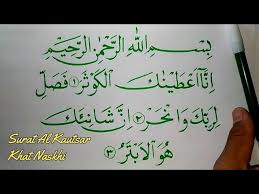 بِسْمِ اللّٰهِ الرَّحْمٰنِ الرَّحِيْمِ
اِنَّآ اَعْطَيْنٰكَ الْكَوْثَرَ ١ فَصَلِّ
لِرَبِّكَ وَانْحَرْ ٢ اِنَّ شَانِئَكَ
هُوَ الْاَبْتَرُ ٣
Surat Al Kautsar
Khat Naskhi